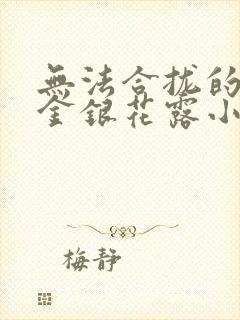 無法合拢的
金銀花露小
梅静